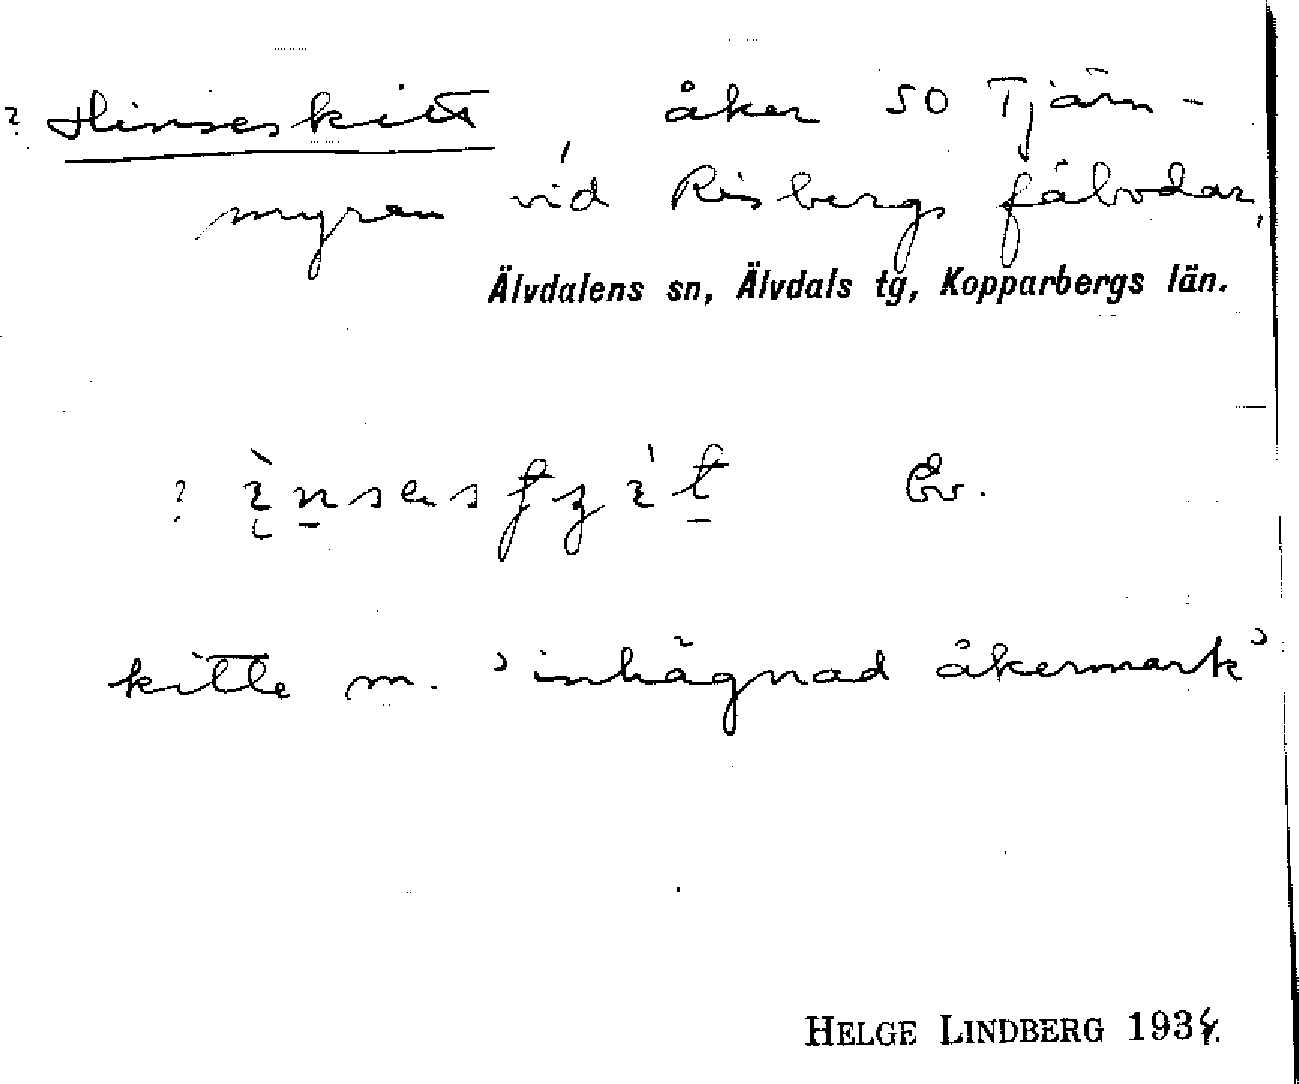 ? Hinseskitt, åker SO Tjärn-
myren vid Risbergs fäbodar,
Älvdalens sn, Älvdals tg, Kopparbergs län.
? Ev.
kitte m. 'inhägnad åkermark'
HELGE LINDBERG 1934.